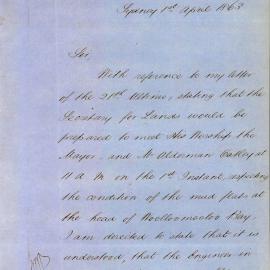 Sydney 1st April 1863
Sir,
With reference to my letter
of the 21st Ultimo, stating that the
Secretary for Lands would be
prepared to meet His Worship the
Mayor, and Mr Alderman Oakley at
11 A M on the 1st Instant, respecting
the condition of the mud flats at
the head of Woolloomooloo Bay,
I am directed to state that it is
understood, that the Engineer in